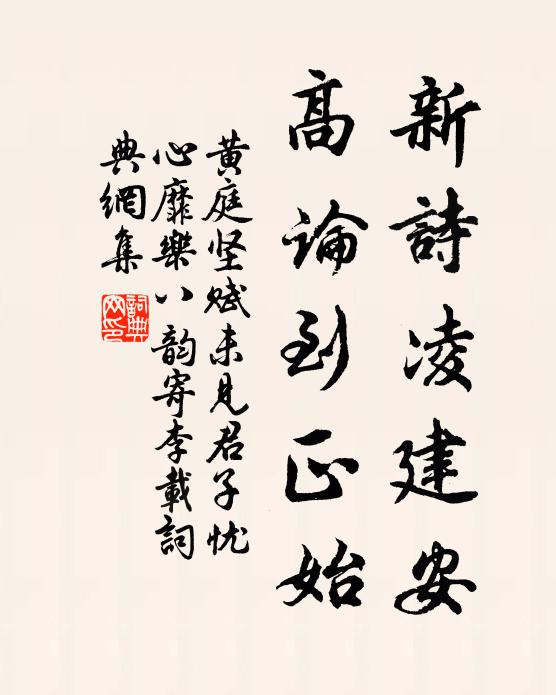 新詩凌建安
高論到正始
黄庭坚赋未見君子忧
心靡樂八韵寄李載詞
典網集
詞典
网印